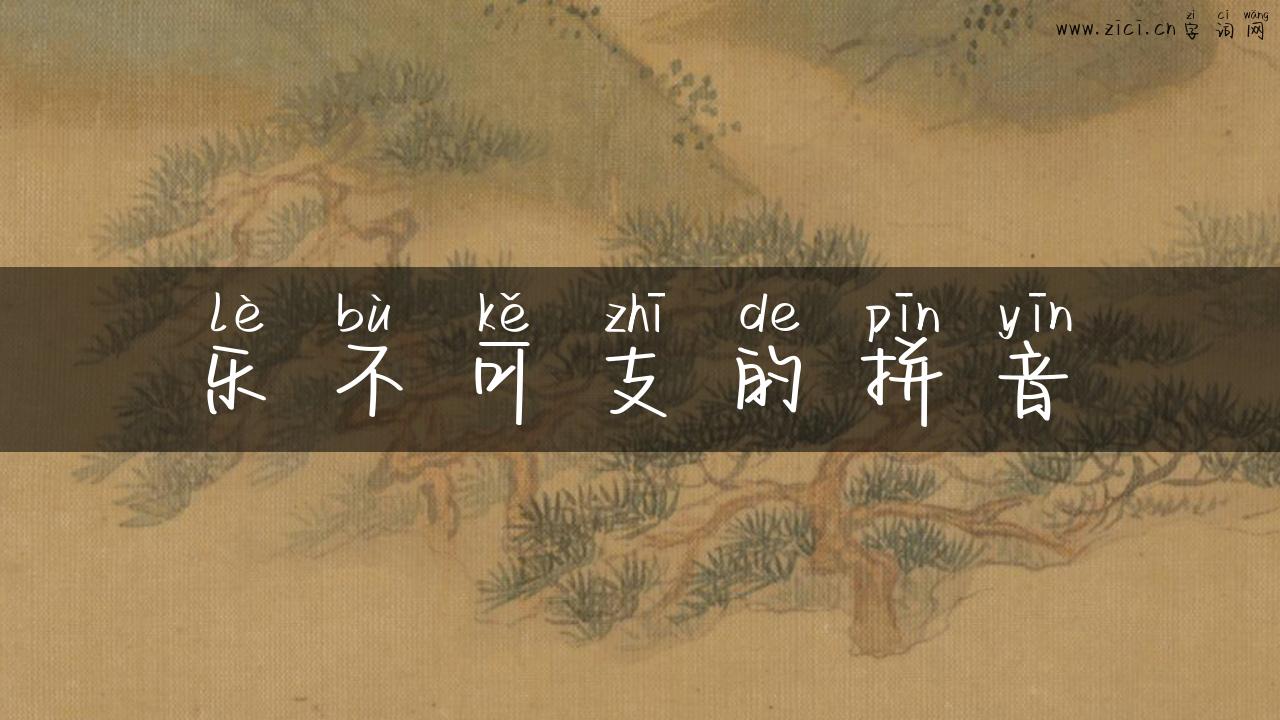 www.zīcī.cn zì cí wǎng
字词网
lè bù kě zhī de pīn yīn
乐不可支的拼音